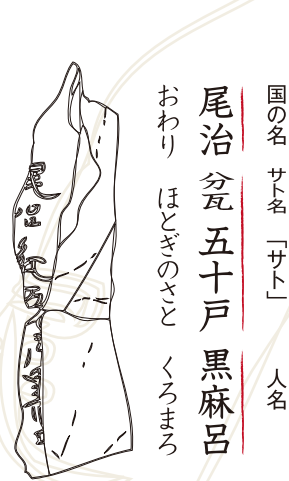 国の名 サト名 「サト」 人名
尾治 瓫 五十戸 黒麻呂
おわり ほとぎのさと くろまろ